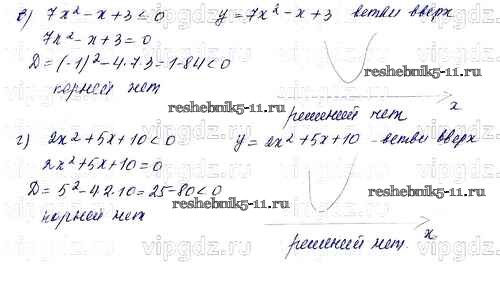 в) 7x² - x + 3 ≤ 0 y = 7x² - x + 3 ветви вверх
7x² - x + 3 = 0
D = (-1)² - 4·7·3 = 1-84 < 0
корней нет
reshebnik5-11.ru
x
решений нет
г) 2x² + 5x + 10 < 0 y = 2x² + 5x + 10 - ветви вверх
2x² + 5x + 10 = 0
D = 5² - 4·2·10 = 25-80 < 0
reshebnik5-11.ru
корней нет
reshebnik5-11.ru
x
решений нет.
vipgdz.ru vipgdz.ru vipgdz.ru